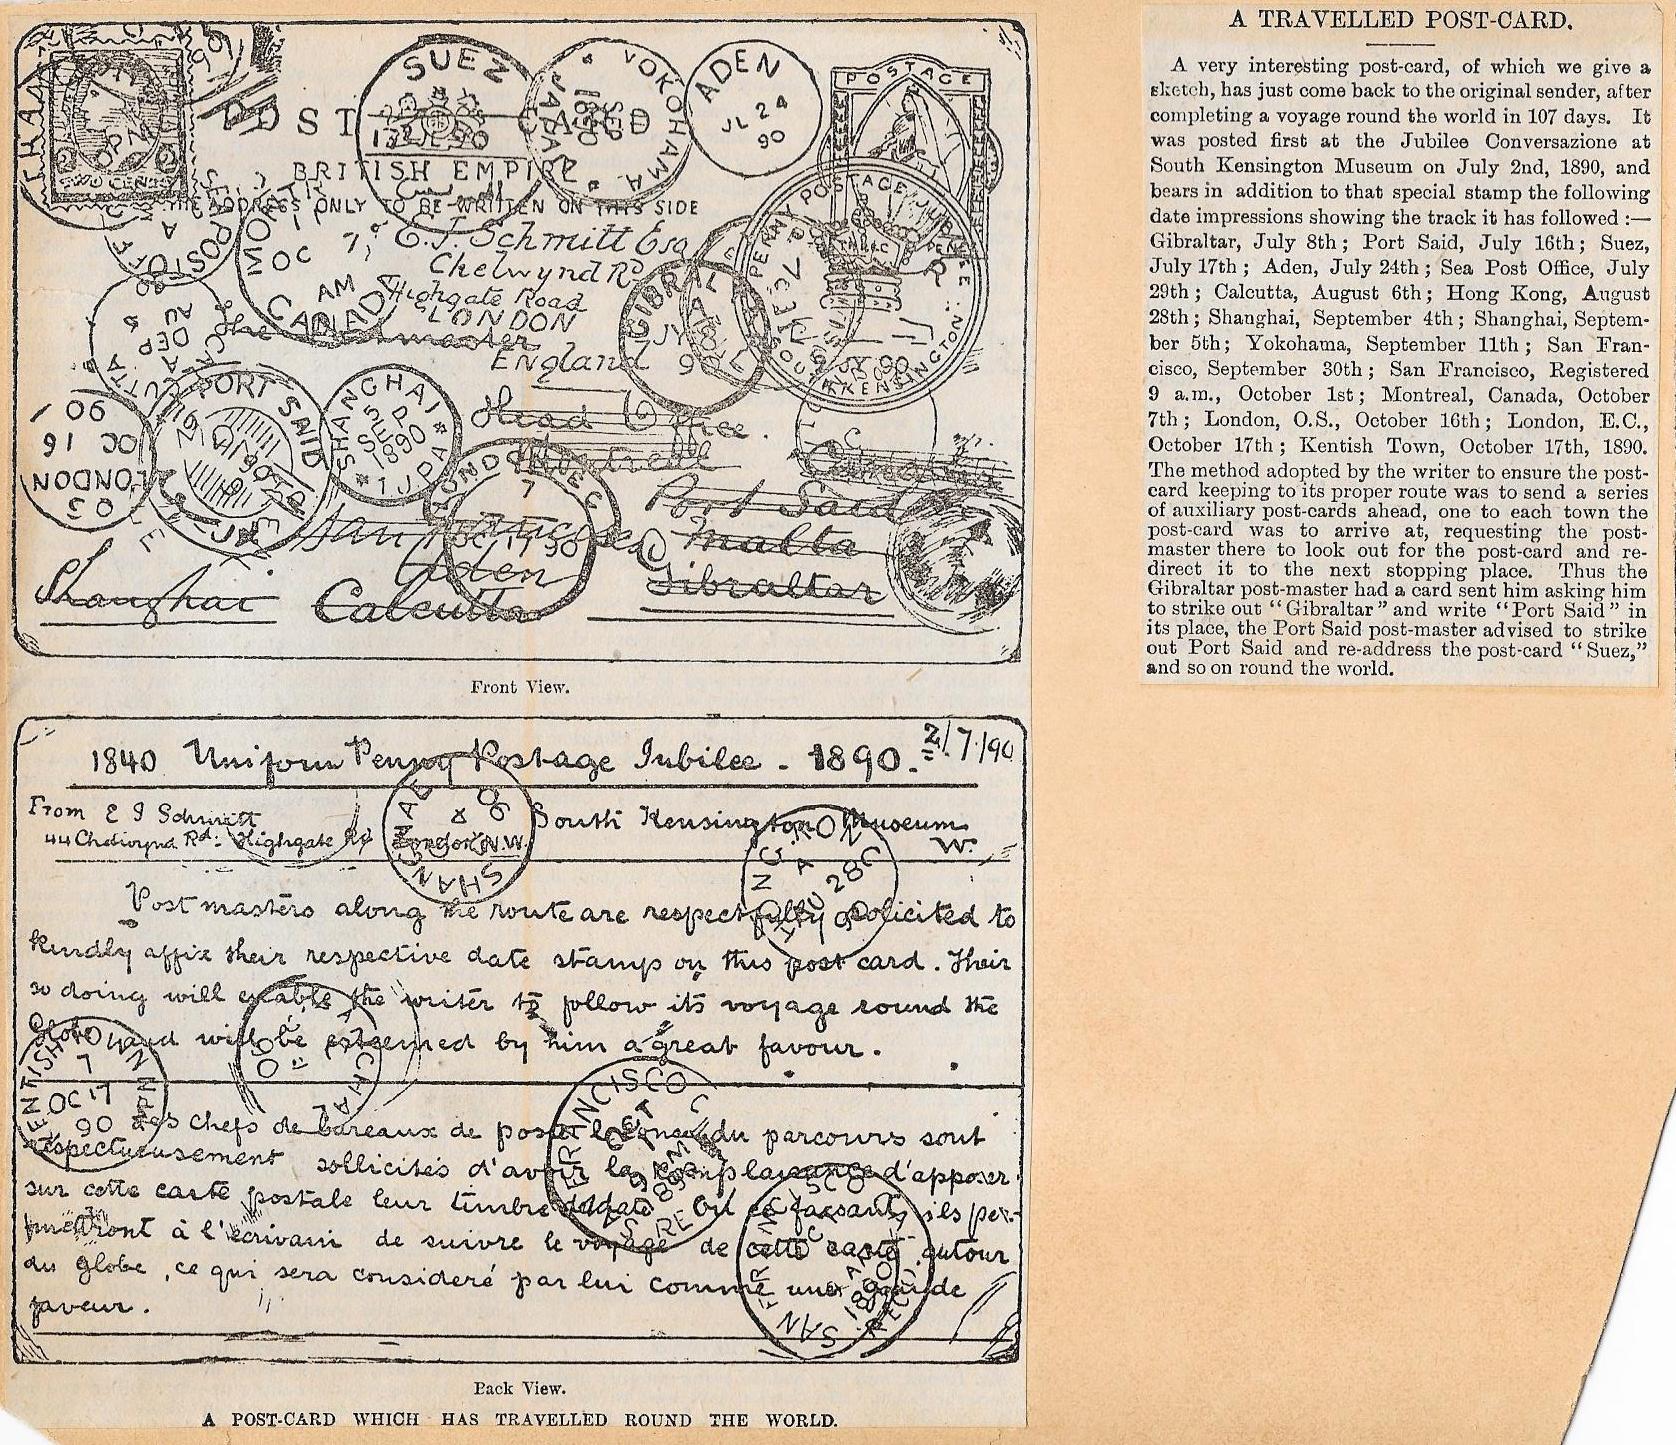 POST CARD
BRITISH EMPIRE
THE ADDRESS ONLY TO BE WRITTEN ON THIS SIDE
TWO CENTS
SUEZ
17 JL 90
YOKOHAMA
JAPAN
SEP
1890
ADEN
JL 24
90
POSTAGE
PENNY POSTAGE JUBILEE
SOUTH KENSINGTON
2 JY 90
SEA POST OFF
MONTREAL
OC 7
AM
CANADA
E. J. Schmitt Esq
Chetwynd Rd
Highgate Road
LONDON
England
The Postmaster
GIBRAL
CALCUTTA
DEP
AU
90
PORT SAID
SHANGHAI
5 SEP
1890
I.J.P.A
LONDON
OC 16
90
LONDON E C
7
OC 17 90
Head Office
Montreal
Canada
Port Said
San Francisco
Malta
Aden
Gibraltar
Shanghai
Calcutta
Front View.
1840 Uniform Penny Postage Jubilee - 1890. 2/7/90
From E J Schmitt
44 Chetwynd Rd: Highgate Rd London N.W.
South Kensington Museum
W.
Postmasters along the route are respectfully solicited to
kindly affix their respective date stamps on this post card. Their
so doing will enable the writer to follow its voyage round the
Globe and will be esteemed by him a great favour.
SHANGHAI
HONG KONG
AU 28
90
KENTISH TOWN
7
OC 17
90
SAN FRANCISCO
OCT
9 AM
1890
REC'D.
Les chefs de bureaux de poste le long du parcours sont
respectueusement sollicités d'avoir la complaisance d'apposer
sur cette carte postale leur timbre à date. En ce faisant, ils per-
mettront à l'écrivain de suivre le voyage de cette carte autour
du globe, ce qui sera consideré par lui comme une grande
faveur.
Back View.
A POST-CARD WHICH HAS TRAVELLED ROUND THE WORLD.
A TRAVELLED POST-CARD.
A very interesting post-card, of which we give a
sketch, has just come back to the original sender, after
completing a voyage round the world in 107 days. It
was posted first at the Jubilee Conversazione at
South Kensington Museum on July 2nd, 1890, and
bears in addition to that special stamp the following
date impressions showing the track it has followed :—
Gibraltar, July 8th; Port Said, July 16th; Suez,
July 17th; Aden, July 24th; Sea Post Office, July
29th; Calcutta, August 6th; Hong Kong, August
28th; Shanghai, September 4th; Shanghai, Septem-
ber 5th; Yokohama, September 11th; San Fran-
cisco, September 30th; San Francisco, Registered
9 a.m., October 1st; Montreal, Canada, October
7th; London, O.S., October 16th; London, E.C.,
October 17th; Kentish Town, October 17th, 1890.
The method adopted by the writer to ensure the post-
card keeping to its proper route was to send a series
of auxiliary post-cards ahead, one to each town the
post-card was to arrive at, requesting the post-
master there to look out for the post-card and re-
direct it to the next stopping place. Thus the
Gibraltar post-master had a card sent him asking him
to strike out "Gibraltar" and write "Port Said" in
its place, the Port Said post-master advised to strike
out Port Said and re-address the post-card "Suez,"
and so on round the world.